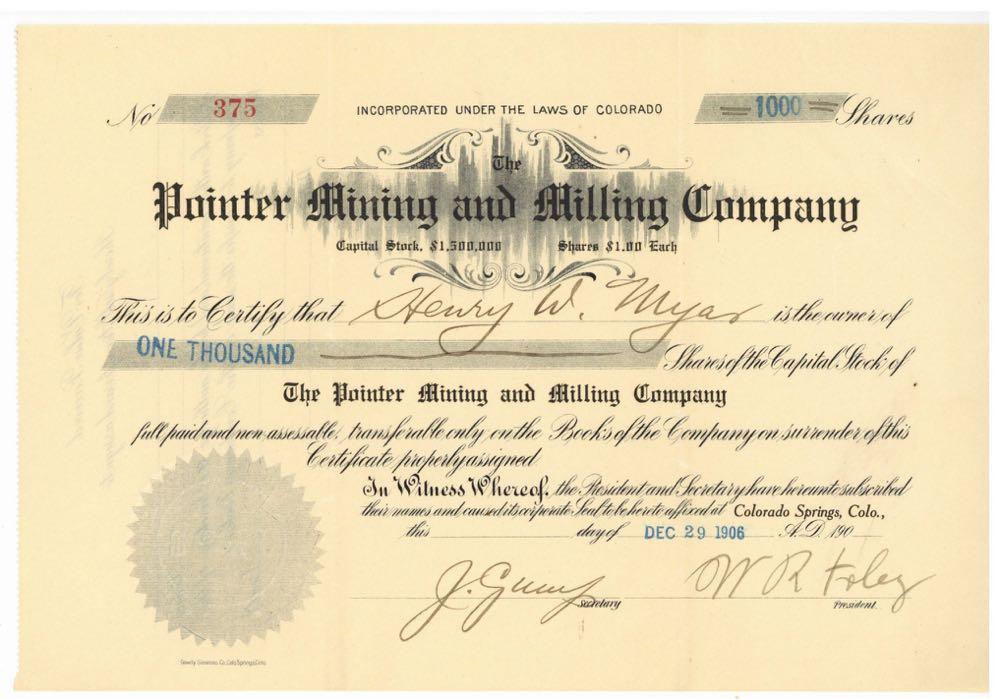 No 375
INCORPORATED UNDER THE LAWS OF COLORADO
1000 Shares
The
Pointer Mining and Milling Company
Capital Stock, $1,500,000 Shares $1.00 Each
This is to Certify that Henry W. Myar is the owner of
ONE THOUSAND Shares of the Capital Stock of
The Pointer Mining and Milling Company
full paid and non-assessable, transferable only on the Books of the Company on surrender of this
Certificate properly assigned
In Witness Whereof, the President and Secretary have hereunto subscribed
their names and caused its corporate Seal to be hereto affixed at Colorado Springs, Colo.,
this day of DEC 29 1906 A.D. 190
J. W R Foley
Secretary President.